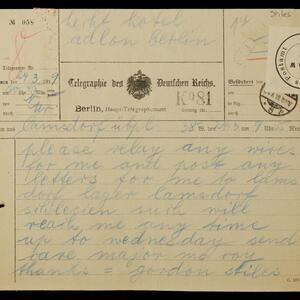 Stiles
No 958
herkt hotel
adlon berlin
Telegraphie des Deutschen Reichs.
Berlin, Haupt-Telegraphenamt
K981
Postamt
lamsdorf
38 W
please relay any wires
for me and post any
letters for me to lams
dorf lager lamsdorf
schlesien such will
reach me any time
up to wednesday send
care major mc roy
thanks = gordon stiles